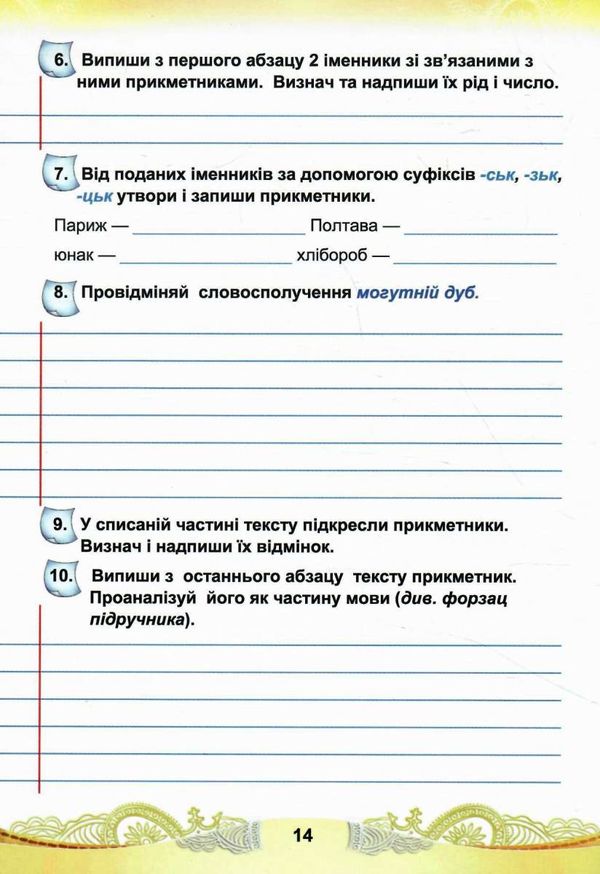 6. Випиши з першого абзацу 2 іменники зі зв'язаними з
ними прикметниками. Визнач та надпиши їх рід і число.
7. Від поданих іменників за допомогою суфіксів -ськ, -зьк,
-цьк утвори і запиши прикметники.
Париж — ____________ Полтава — ____________
юнак — ____________ хлібороб — ____________
8. Провідміняй словосполучення могутній дуб.
9. У списаній частині тексту підкресли прикметники.
Визнач і надпиши їх відмінок.
10. Випиши з останнього абзацу тексту прикметник.
Проаналізуй його як частину мови (див. форзац
підручника).
14